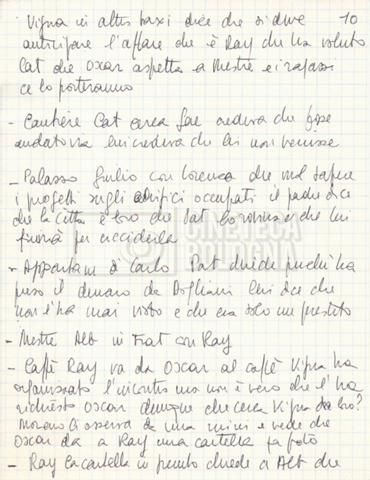 Vigna in altro taxi dice che si deve 10
anticipare l'affare che è Ray che ha voluto
Cat che Oscar aspetta a Mestre e i ragazzi
ce lo porteranno
- Cantiere Cat cerca credeva che fosse
andata via lui credeva che lei non venisse
- Palazzo Giulio con Lorenza che vuol sapere
i progetti sugli edifici occupati il padre dice
che la città è loro che Pat la rovina e che lui
finirà per ucciderla
- Appartam di Carlo Pat chiede perché ha
preso il denaro da Dogliani lui dice che
non l'ha mai visto e che era solo un prestito
- Mestre Alb in Fiat con Ray
- Caffè Ray va da Oscar al caffè Vigna ha
organizzato l'incontro ma non è vero che l'ha
richiesto Oscar dunque che cerca Vigna da loro?
Moreno li osserva da una mini e vede che
Oscar da a Ray una cartella fa foto
- Ray la cartella in chiede a Alb che
CINETECA
BOLOGNA